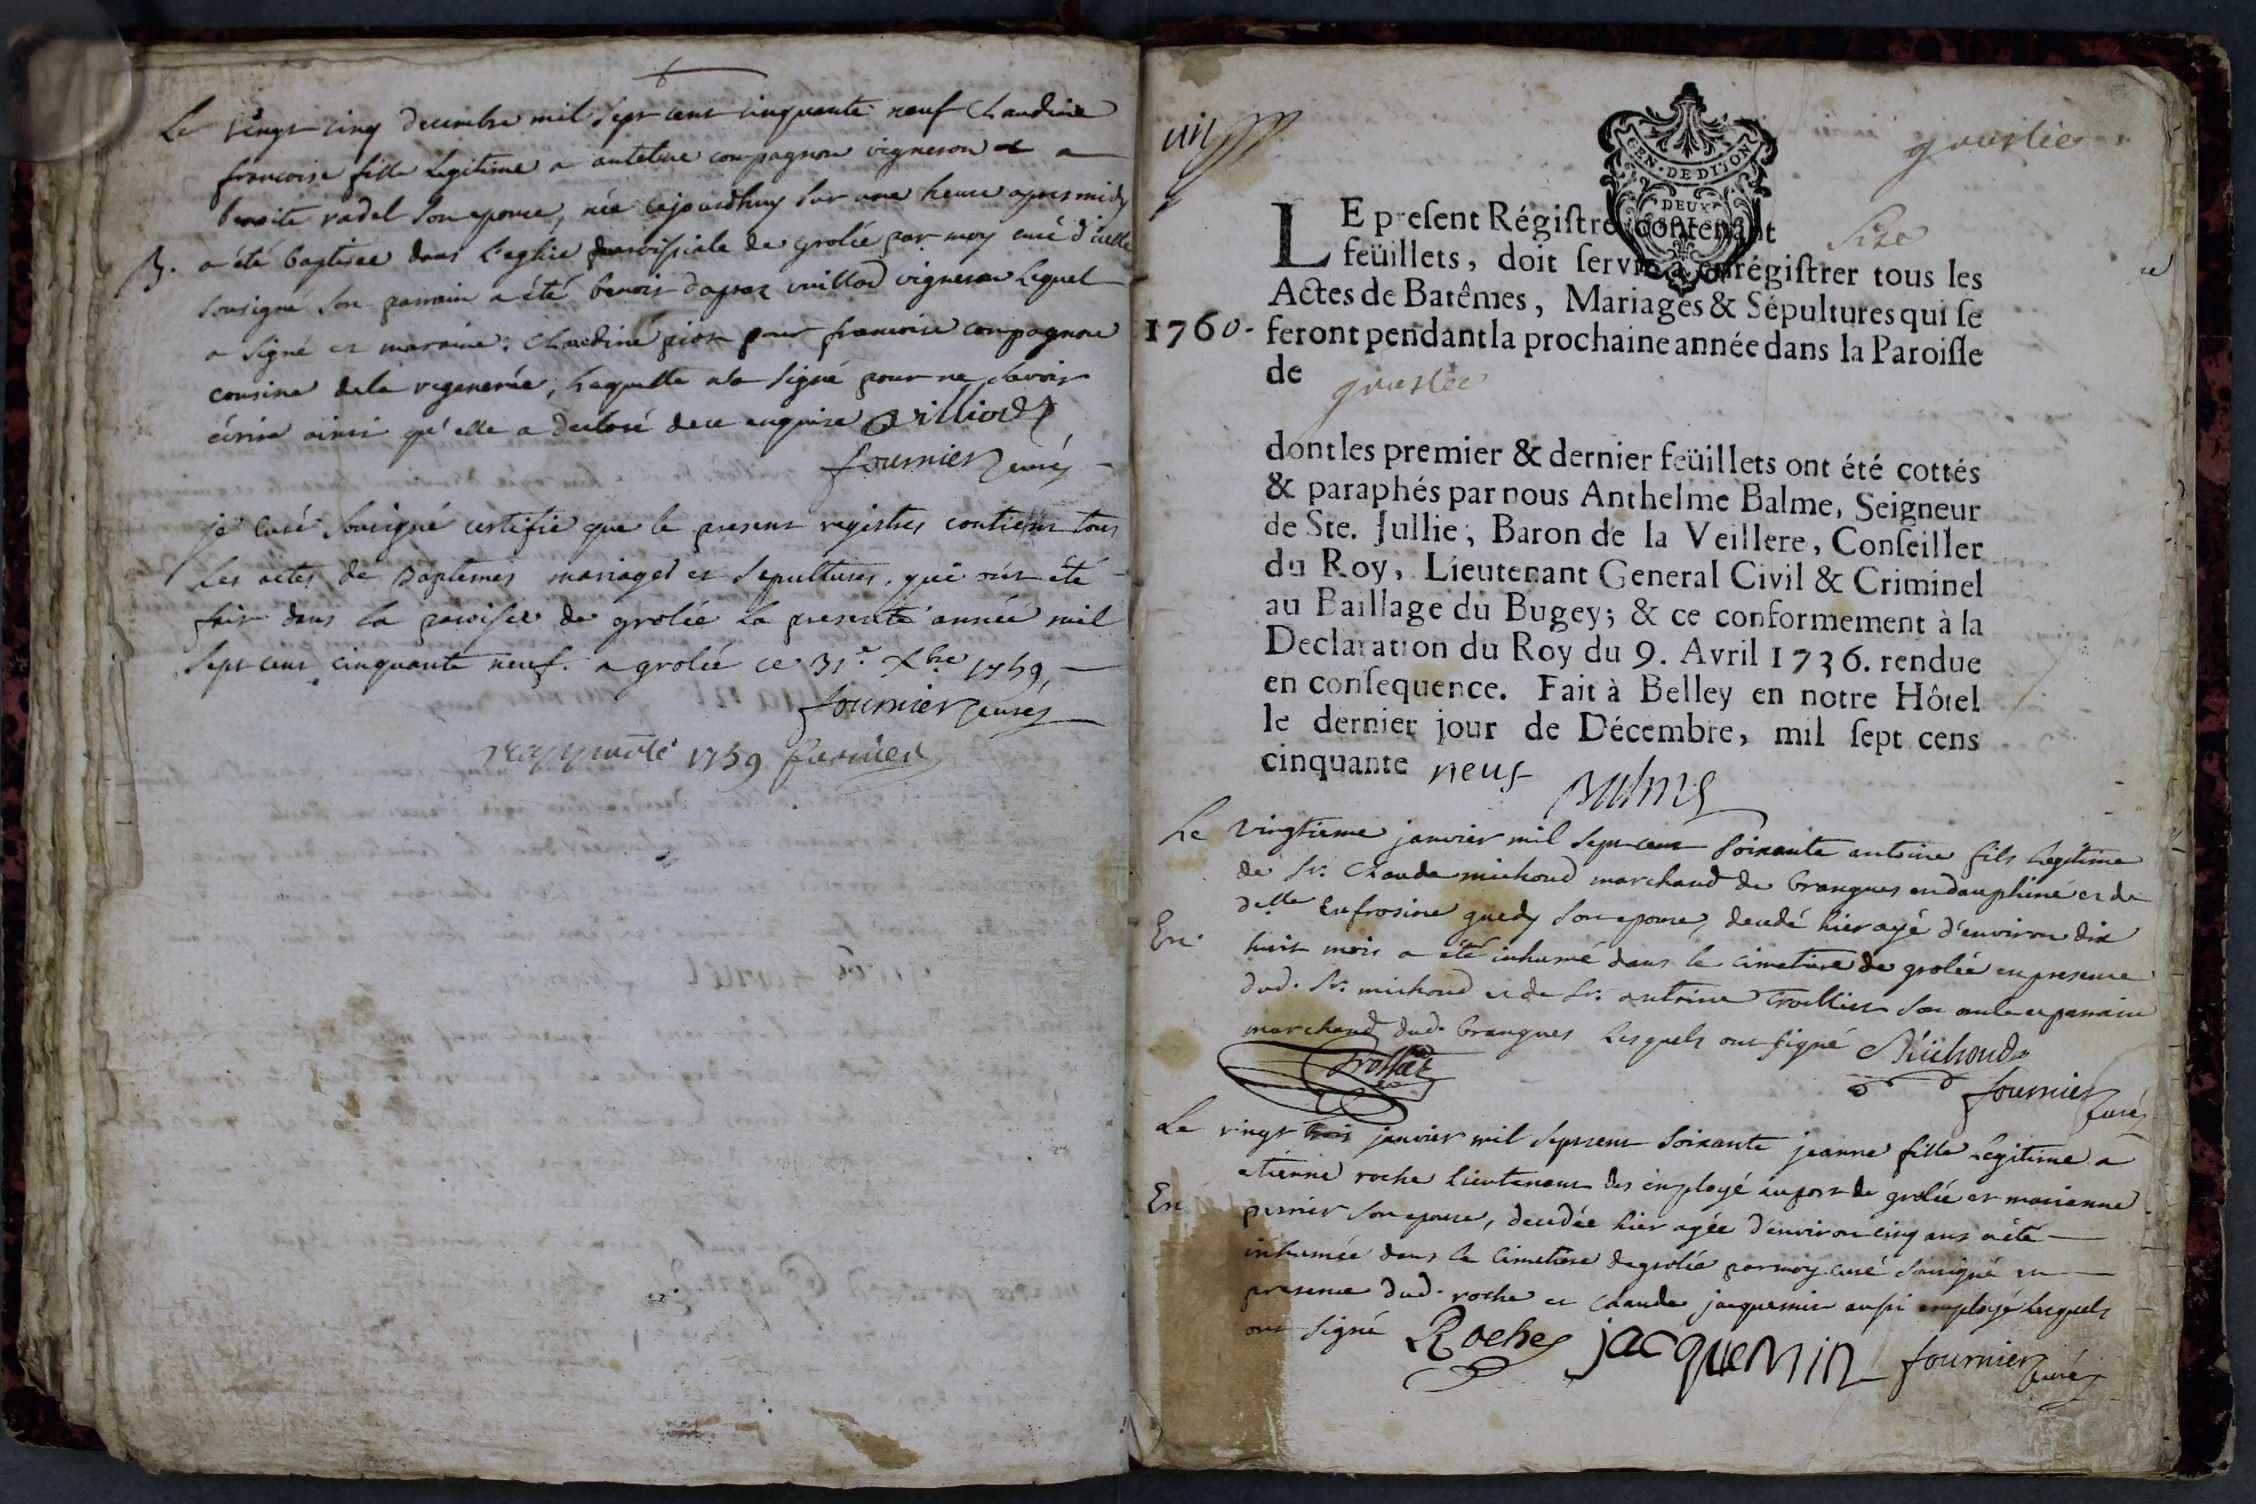 Le vingt cinq decembre mil sept cent cinquante neuf Claudine
francoise fille legitime a antelme compagnon vigneron et a
benoite radel son epouse, née cejourdhuy sur une heure apres midy
B. a été baptisée dans l'eglise paroissiale de grolée par moy curé d'icelle
sousigné son parrain a été benoit vuillod vigneron lequel
a signé et maraine: Claudine piot pour francoise compagnon
cousine de la regenerée, laquelle n'a signé pour ne savoir
écrire ainsi qu'elle a declaré de ce enquise Villiod
fournier curé
je curé sousigné certifie que le present registres contient tous
les actes de Baptemes mariages et sepultures, qui ont été
fait dans la paroisse de grolée la presente année mil
sept cent cinquante neuf. a grolée ce 31e Xbre 1759,
fournier curé
1759
groslée
GEN. DE DIJON
DEUX
LE present Régistre contenant Size
feüillets, doit servir à enrégistrer tous les
Actes de Batêmes, Mariages & Sépultures qui se
1760. feront pendant la prochaine année dans la Paroisse
de groslée
dont les premier & dernier feüillets ont été cottés
& paraphés par nous Anthelme Balme, Seigneur
de Ste. Jullie, Baron de la Veillere, Conseiller
du Roy, Lieutenant General Civil & Criminel
au Baillage du Bugey; & ce conformement à la
Declaration du Roy du 9. Avril 1736. rendue
en consequence. Fait à Belley en notre Hôtel
le dernier jour de Décembre, mil sept cens
cinquante neuf Balme
Le vingtieme janvier mil sept cent soixante antoine fils legitime
de Sr. Claude michoud marchand de brangues en dauphiné et de
delle Eufrosine guedy son epouse, decedé hier agé d'environ dix
En. huit mois a été inhumé dans le cimetiere de grolée en presence
dud. Sr. michoud et de Sr. antoine trolliet son oncle et parrain
marchand dud. brangues lesquels ont signé Michoud
Trolliet
fournier curé
Le vingt trois janvier mil sept cent soixante jeanne fille legitime a
etienne roche lieutenant des employé au port de grolée et marianne
En perrier son epouse, decedée hier agée d'environ cinq ans a été
inhumée dans le cimetiere de grolée par moy curé sousigné en
presence dud. roche et claude jacquemin aussi employé lesquels
ont signé Roche jacquemin fournier curé